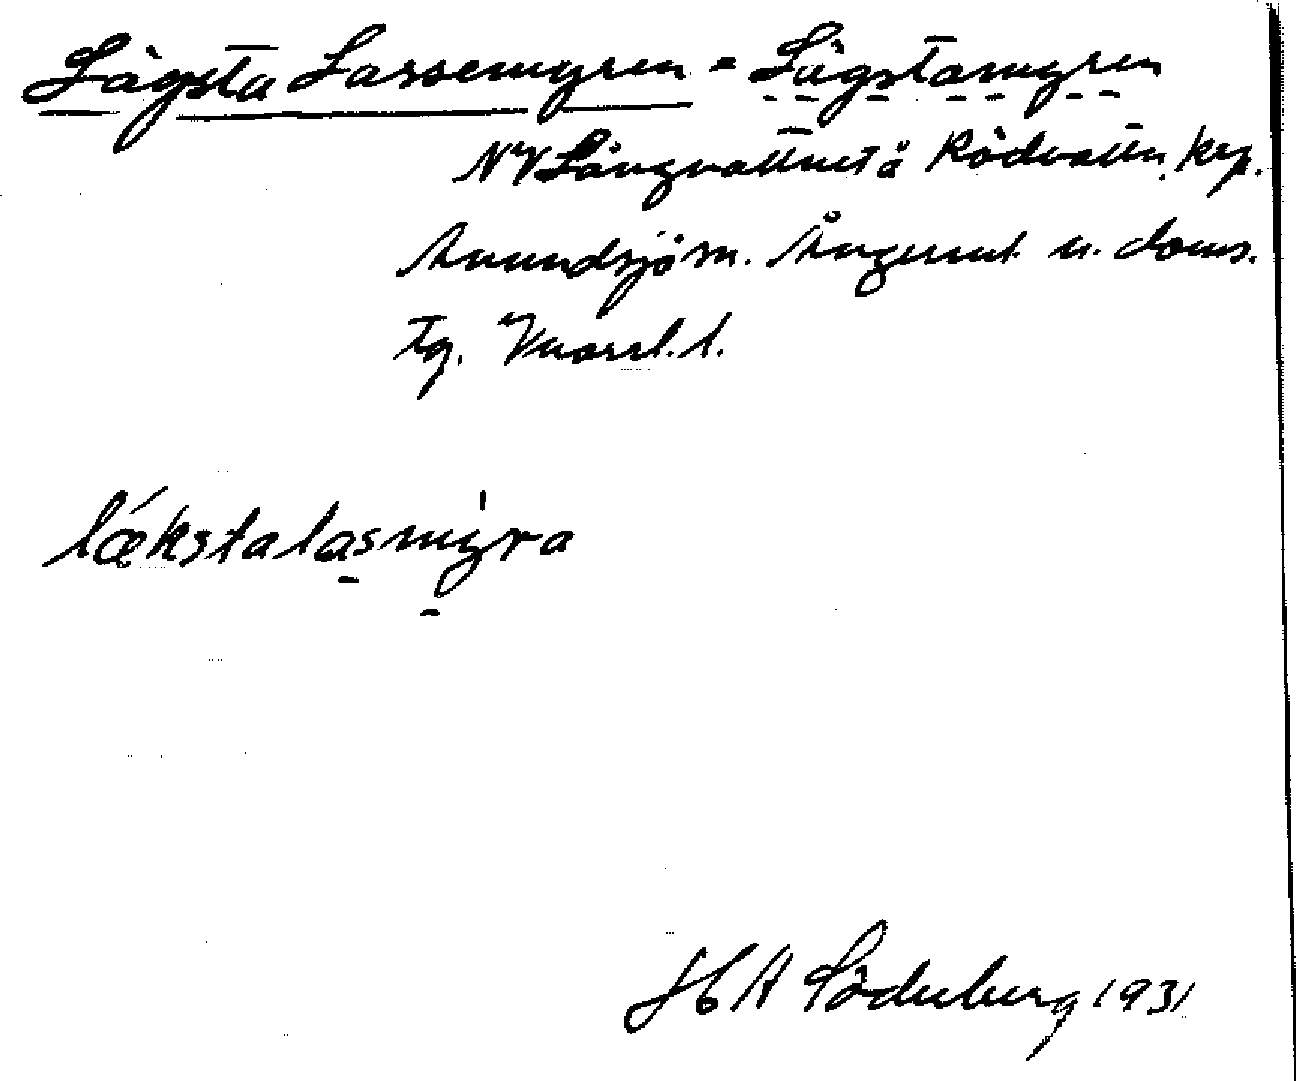 Lägsta Lassemyren = Lägstamyren
NV Långvattnet å Rödvattn. krp.
Anundsjö sn. Ångerml. n. doms.
Tg.
lǽkstalasmỳra
H A Söderberg 1931